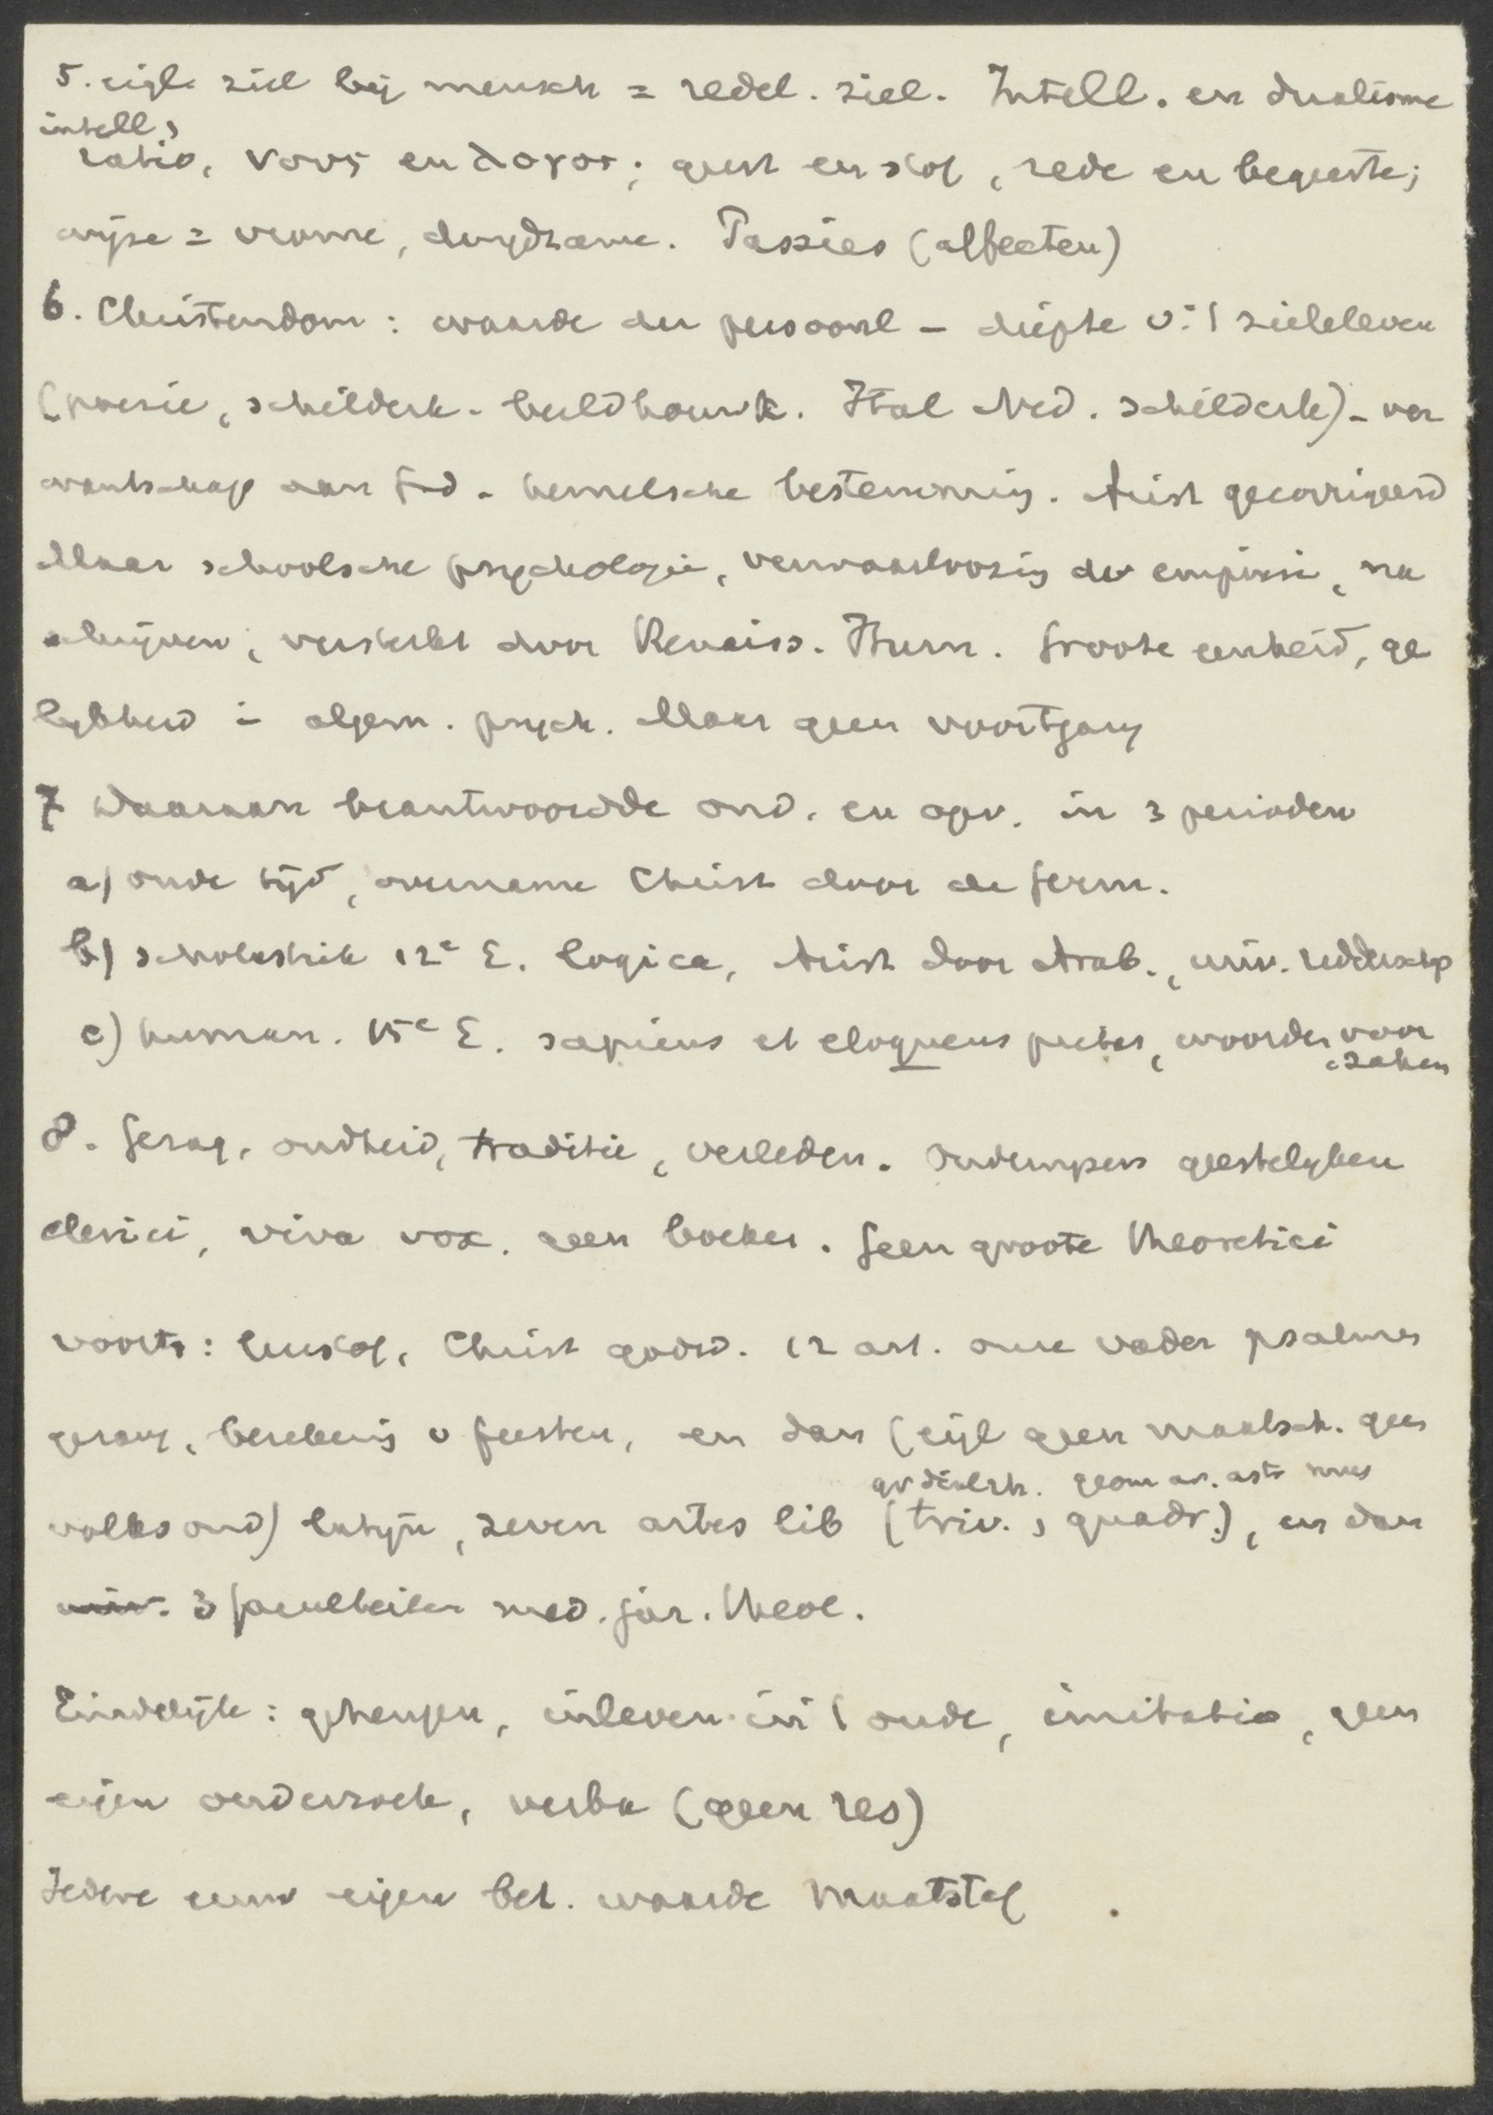 5. eigl. ziel bij mensch = redel. ziel. Intell. en dualisme
intell,
ratio, νους en λογος; geest en stof, rede en begeerte;
wijze = vrome, deugdzame. Passies (affecten)
6. Christendom: waarde der persoonl - diepte v: 't zieleleven
(poezie, schilderk. beeldhouwk. Ital Ned. schilderk) - ver
wantschap aan God - hemelsche bestemming. Arist gecorrigeerd
Maar schoolsche psychologie, verwaarloozing der empirie, na
schrijven; versterkt door Renaiss. Hum. Groote eenheid, ge
lykheid in algem. psych. Maar geen voortgang
7 Waaraan beantwoordde ond. en opv. in 3 perioden
a) oude tijd, overname Christ door de Germ.
b) scholastiek 12e E. logica, Arist door Arab., univ. ridderschp
c) human. 15e E. sapiens et eloquens pietas, woorden voor
zaken
8. Gezag, oudheid, traditie, verleden. Onderwijzers geestelyken
clerici, viva vox. geen boeken. Geen groote theoretici
voorts: leerstof, Christ godsd. 12 art. onze vader psalmen
gezang, berekenig v feesten, en dan (eigl geen maatsch. geen
gr dialekt. geom ar. astr mus
volksond) latijn, zeven artes lib (triv., quadr.), en dan
3 faculteiten med. jur. theol.
Eindelijk: geheugen, inleven in 't oude, imitatio, geen
eigen onderzoek, verba (geen res)
Iedere eeuw eigen bet. waarde maatstaf.